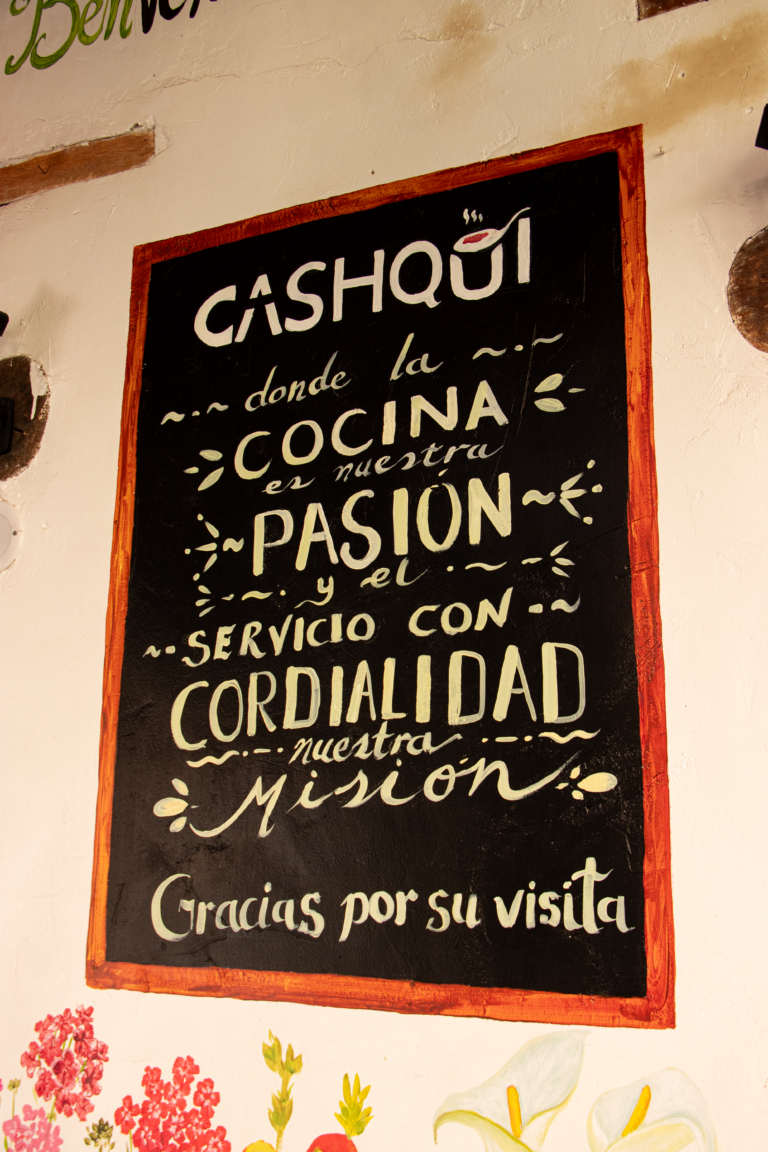 CASHQUI
donde la
COCINA
es nuestra
PASIÓN
y el
SERVICIO CON
CORDIALIDAD
nuestra
Misión
Gracias por su visita